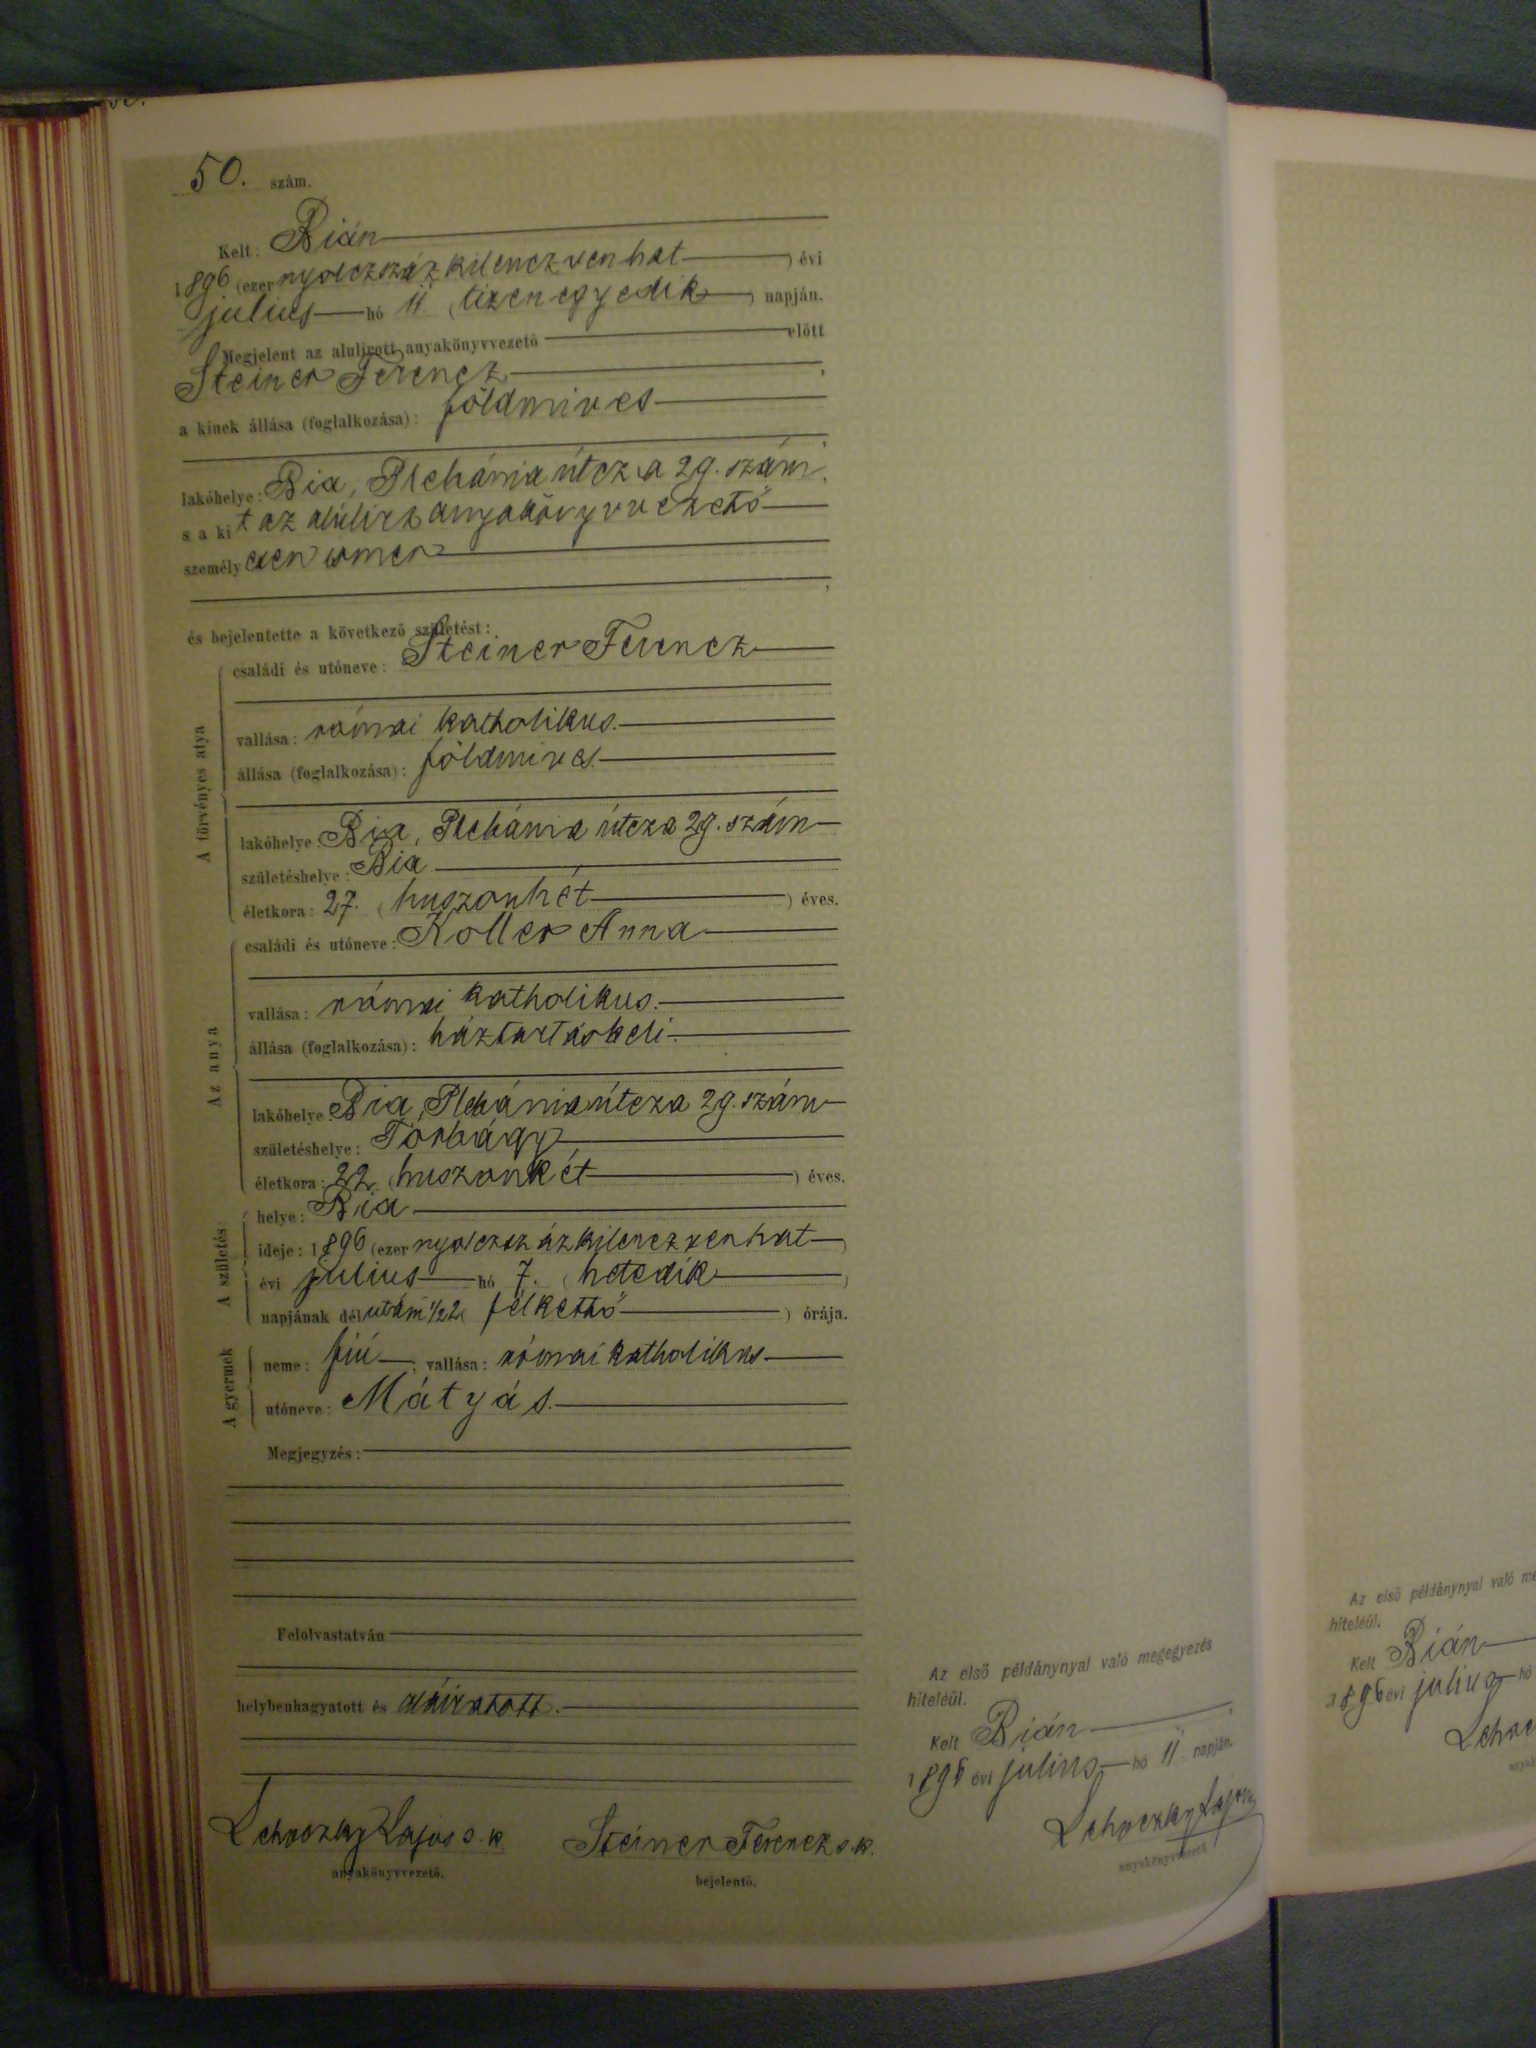 50. szám.
Kelt: Bián
1896 (ezer nyolczszázkilenczvenhat) évi
julius hó 11. (tizenegyedik) napján.
Megjelent az alulirott anyakönyvvezető előtt
Steiner Ferencz,
a kinek állása (foglalkozása): földmives
lakóhelye: Bia, Plebánia útcza 29. szám,
s a kit az alúlirt anyakönyvvezető
személyesen ismer
és bejelentette a következő születést:
A törvényes atya
családi és utóneve: Steiner Ferencz
vallása: római katholikus.
állása (foglalkozása): földmives.
lakóhelye: Bia, Plebánia útcza 29. szám
születéshelye: Bia
életkora: 27. (huszonhét) éves.
Az anya
családi és utóneve: Koller Anna
vallása: római katholikus.
állása (foglalkozása): háztartásbeli.
lakóhelye: Bia, Plebánia útcza 29. szám
születéshelye: Torbágy
életkora: 22. (huszonkét) éves.
A születés
helye: Bia
ideje: 1896 (ezer nyolczszázkilenczvenhat)
évi julius hó 7. (hetedik)
napjának délután 1/2 2 (félkettő) órája.
A gyermek
neme: fiú, vallása: római katholikus
utóneve: Mátyás.
Megjegyzés:
Felolvastatván
helybenhagyatott és aláiratott.
Lehoczky Lajos s. k.
anyakönyvvezető.
Steiner Ferencz s. k.
bejelentő.
Az első példánynyal való megegyezés
hiteléül.
Kelt Bián
1896 évi julius hó 11. napján.
Lehoczky Lajos
anyakönyvvezető
Az első példánynyal való
hiteléül.
Kelt Bián
1896 évi julius hó